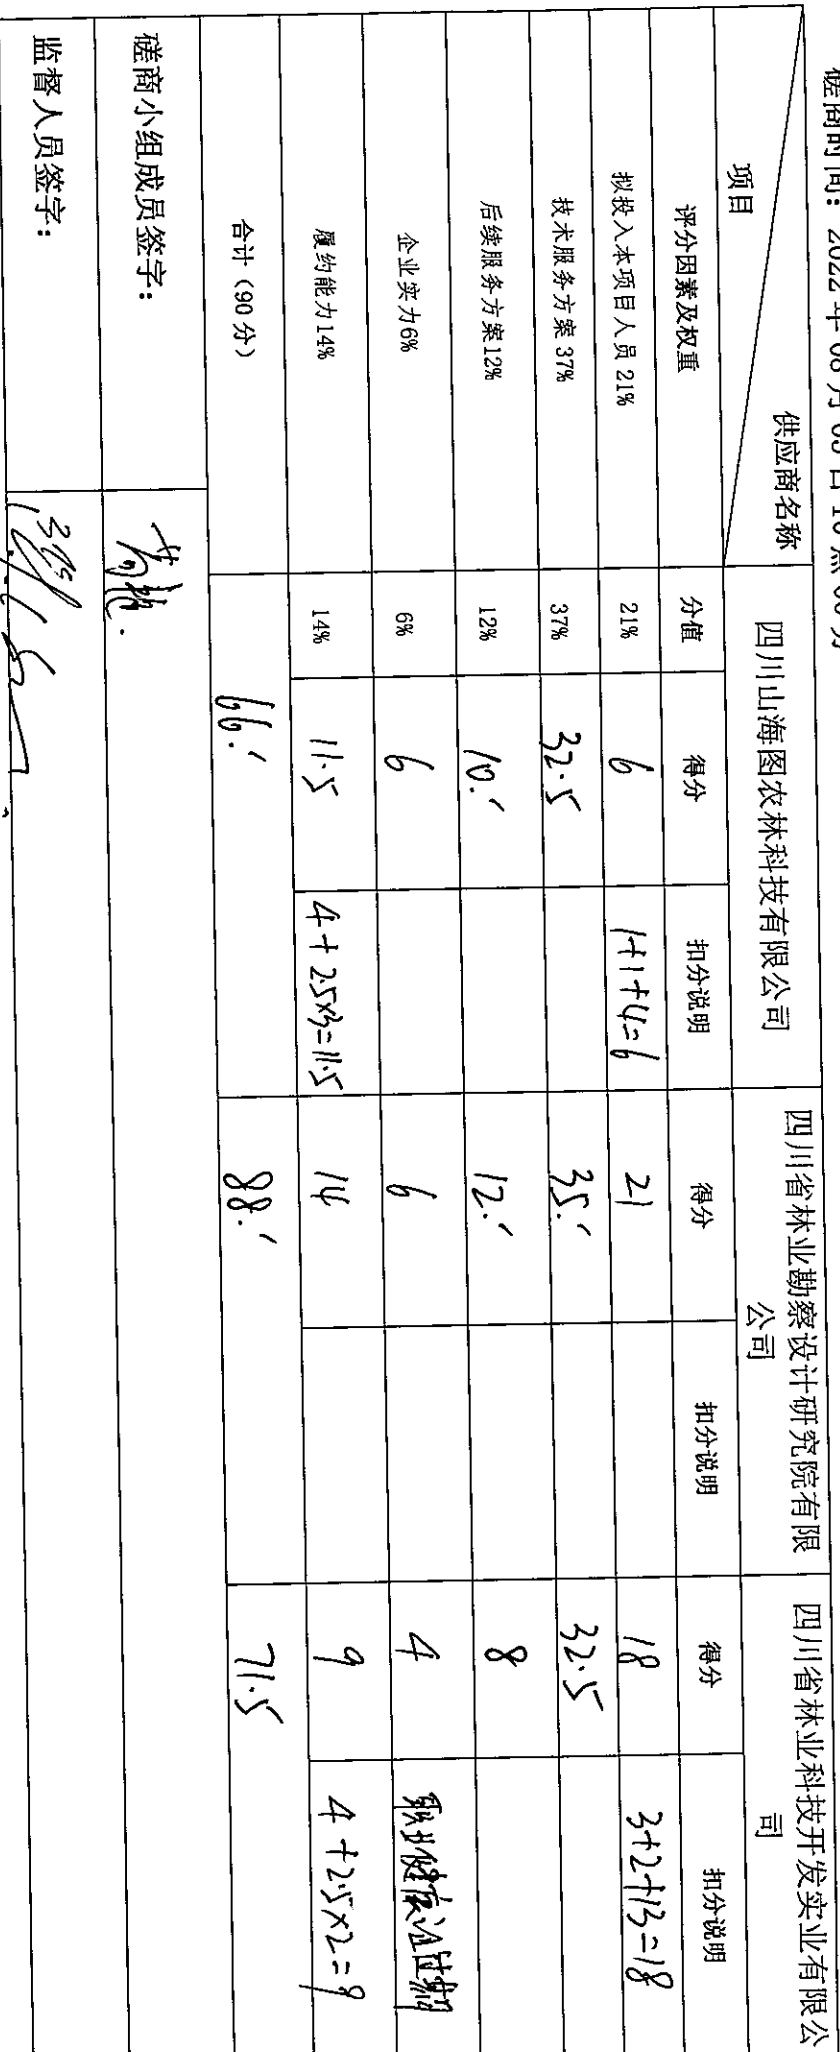 磋商时间：2022年08月05日10点00分
项目 供应商名称 四川山海图农林科技有限公司 四川省林业勘察设计研究院有限公司 四川省林业科技开发实业有限公司
评分因素及权重 分值 得分 扣分说明 得分 扣分说明 得分 扣分说明
拟投入本项目人员 21% 21% 6 1+1+4=6 21 18 3+2+13=18
技术服务方案 37% 37% 32.5 35.' 32.5
后续服务方案12% 12% 10.' 12.' 8
企业实力6% 6% 6 6 4 职业健康证过期
履约能力14% 14% 11.5 4+2.5×3=11.5 14 9 4+2.5×2=9
合计（90分） 66.' 88.' 71.5
磋商小组成员签字：
监督人员签字：